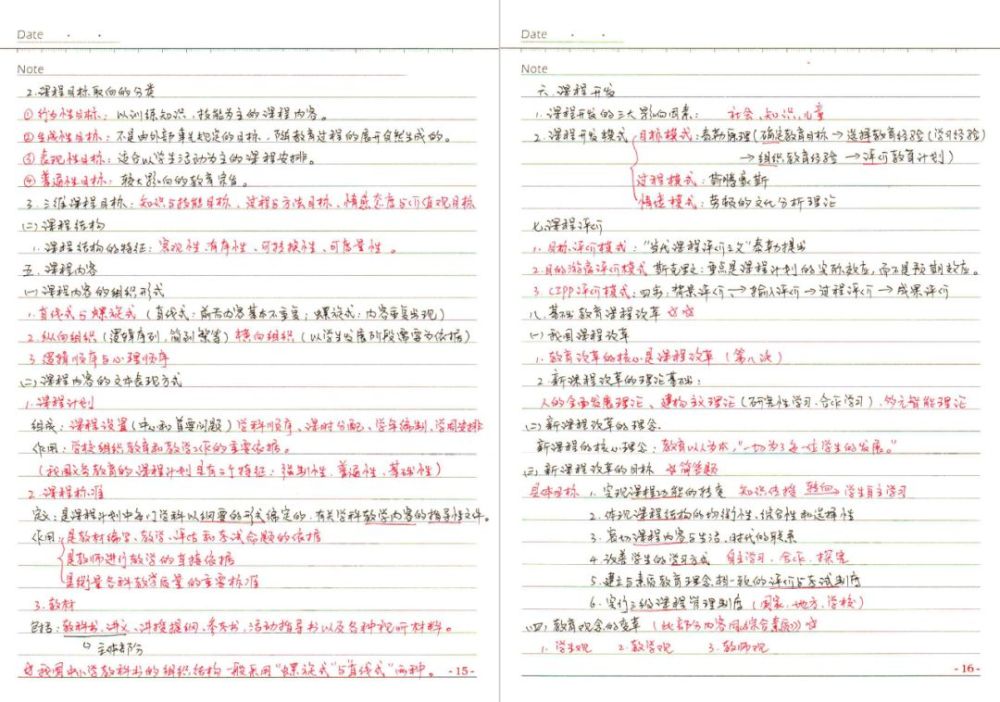 Date
Note
2.课程目标取向的分类
①行为性目标：以训练知识、技能为主的课程内容。
②生成性目标：不是由外部事先规定的目标，随教育过程的展开自然生成的。
③表现性目标：适合以学生活动为主的课程安排。
④普遍性目标：较大影响的教育宗旨。
3.三维课程目标：知识与技能目标、过程与方法目标、情感态度与价值观目标
(三)课程结构
1.课程结构的特征：客观性、有序性、可转换性、可度量性。
五.课程内容
(一)课程内容的组织形式
1.直线式与螺旋式(直线式：前后内容基本不重复；螺旋式：内容重复出现)
2.纵向组织(逻辑序列，简到繁等)横向组织(以学生发展阶段需要为依据)
3.逻辑顺序与心理顺序
(二)课程内容的文本表现方式
1.课程计划
组成：课程设置(中心和首要问题)学科顺序、课时分配、学年编制、学周安排
作用：学校组织教育和教学工作的重要依据。
(我国义务教育的课程计划具有三个特征：强制性、普遍性、基础性)
2.课程标准
定义：是课程计划中每门学科以纲要的形式编定的、有关学科教学内容的指导性文件。
作用：是教材编写、教学、评估和考试命题的依据
是教师进行教学的直接依据
是衡量各科教学质量的重要标准
3.教材
包括：教科书、讲义、讲授提纲、参考书、活动指导书以及各种视听材料。
主体部分
☆我国中小学教科书的组织结构一般采用“螺旋式”与“直线式”两种。
-15-
Date
Note
六.课程开发
1.课程开发的三大影响因素：社会、知识、儿童
2.课程开发模式 目标模式：泰勒原理(确定教育目标→选择教育经验(学习经验)
→组织教育经验→评价教育计划)
过程模式：斯腾豪斯
情境模式：劳顿的文化分析理论
七.课程评价
1.目标评价模式：“当代课程评价之父”泰勒提出
2.目的游离评价模式 斯克里文：重点是课程计划的实际效应，而不是预期效应。
3.CIPP评价模式：四步：背景评价→输入评价→过程评价→成果评价
八.基础教育课程改革 ☆☆
(一)我国课程改革
1.教育改革的核心是课程改革(第八次)
2.新课程改革的理论基础：
人的全面发展理论、建构主义理论(研究性学习、合作学习)、多元智能理论
(二)新课程改革的理念
新课程的核心理念：教育以人为本，“一切为了每一位学生的发展。”
(三)新课程改革的目标 ☆简答题
具体目标 1.实现课程功能的转变 知识传授 转向→学生自主学习
2.体现课程结构的均衡性、综合性和选择性
3.密切课程内容与生活、时代的联系
4.改善学生的学习方式 自主学习、合作、探究
5.建立与素质教育理念相一致的评价与考试制度
6.实行三级课程管理制度(国家、地方、学校)
(四)教育观念的变革(此部分内容同《综合素质》)☆
1.学生观 2.教学观 3.教师观
-16-